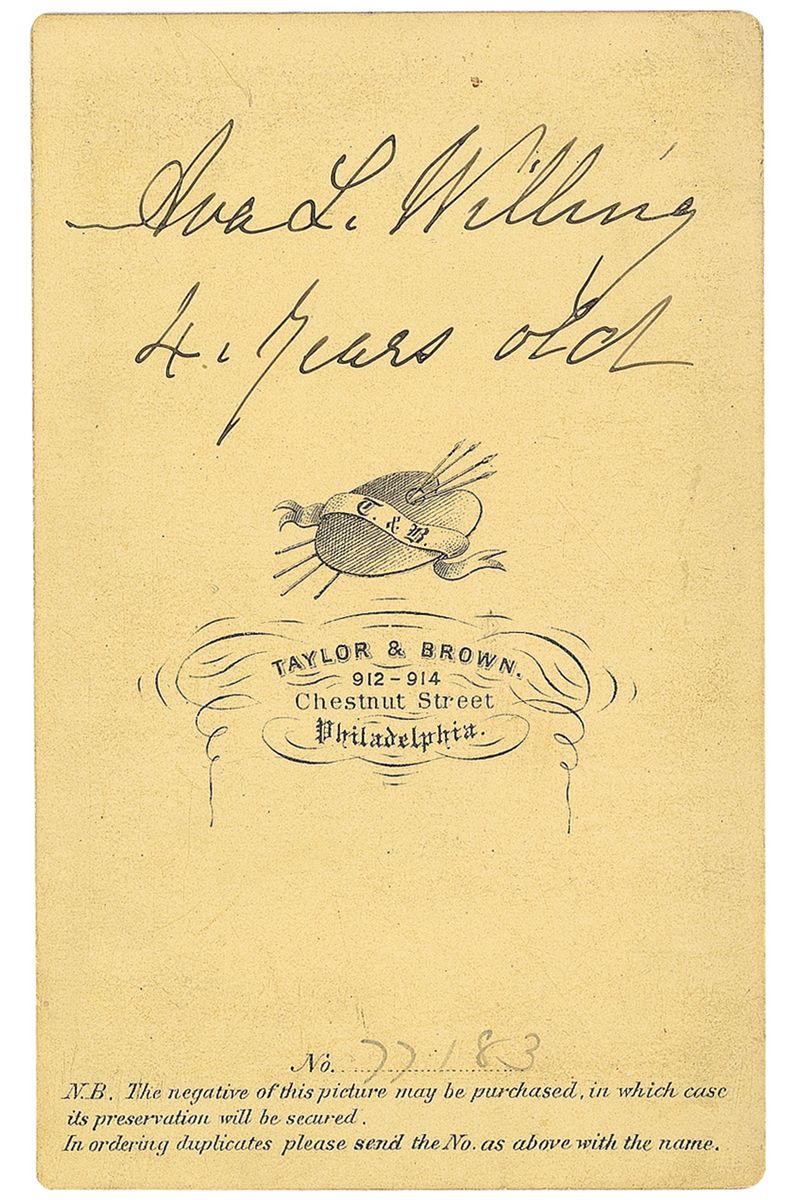 Ava L. Willing
4. years old
T & B.
TAYLOR & BROWN.
912-914
Chestnut Street
Philadelphia.
No. 77183
N.B. The negative of this picture may be purchased, in which case
its preservation will be secured.
In ordering duplicates please send the No. as above with the name.